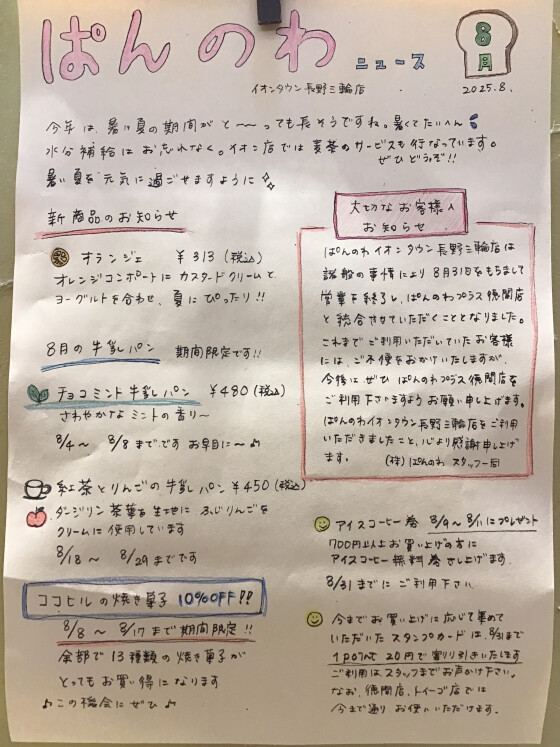 ぱんのわ ニュース
8月
イオンタウン長野三輪店
2025.8.
今年は、暑い夏の期間がと〜〜っても長そうですね。暑くてたいへん
水分補給はお忘れなく。イオン店では麦茶のサービスも行なっています。
ぜひどうぞ!!
暑い夏を元気に過ごせますように
新商品のお知らせ
オランジェ ¥313(税込)
オレンジコンポートにカスタードクリームと
ヨーグルトを合わせ、夏にぴったり!!
8月の牛乳パン 期間限定です!!
チョコミント牛乳パン ¥480(税込)
さわやかなミントの香り〜
8/4〜 8/8までです お早目に〜♪
紅茶とりんごの牛乳パン ¥450(税込)
ダージリン茶葉を生地に ふじりんごを
クリームに使用しています
8/18 〜 8/29までです
ココヒルの焼き菓子 10%OFF!!
8/8〜 8/17まで期間限定!!
全部で13種類の焼き菓子が
とってもお買い得になります
♪この機会にぜひ♪
大切なお客様へ
お知らせ
ぱんのわイオンタウン長野三輪店は
諸般の事情により8月31日をもちまして
営業を終了し、ぱんのわプラス徳間店
と統合させていただくこととなりました。
これまでご利用いただいていたお客様
には、ご不便をおかけいたしますが、
今後はぜひ ぱんのわプラス徳間店を
ご利用下さいますようお願い申し上げます。
ぱんのわイオンタウン長野三輪店をご利用
いただきましたこと、心より感謝申し上げ
ます。 (株)ぱんのわ スタッフ一同
アイスコーヒー券 8/9〜8/11にプレゼント
700円以上お買い上げの方に
アイスコーヒー無料券さし上げます。
8/31までにご利用下さい
今までお買い上げに応じて集めて
いただいたスタンプカードは、8/31まで
1pointで20円で割り引きいたします
ご利用はスタッフまでお声かけ下さい。
なお、徳間店、トイーゴ店では
今まで通りお使いいただけます。